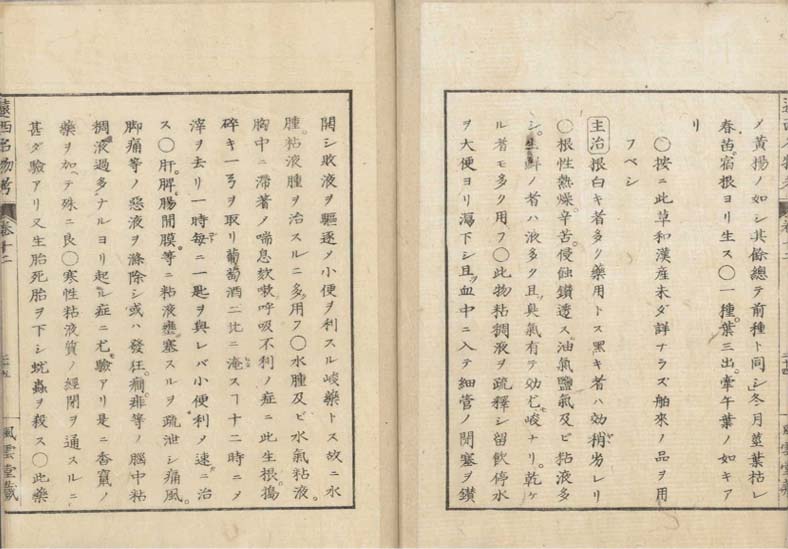 メ黄楊ノ如シ其餘總テ前種ト同シ冬月莖葉枯レ
春苗宿根ヨリ生ス〇一種葉三出牽牛葉ノ如キア
リ
〇按ニ此草和漢産未ダ詳ナラズ舶來ノ品ヲ用
フベシ
主治根白キ者多ク藥用トス黒キ者ハ効稍劣レリ
〇根性熱燥辛苦侵蝕鑚透ス油氣鹽氣及ビ粘液多
シ生鮮ノ者ハ液多ク且臭氣有テ効尤峻ナリ乾ケ
ル者モ多ク用フ〇此物粘稠液ヲ疏釋シ留飲停水
ヲ大便ヨリ瀉下シ且血中ニ入テ細管ノ閉塞ヲ鑚
開シ敗液ヲ驅逐メ小便ヲ利スル峻藥トス故ニ水
腫粘液腫ヲ治スルニ多用フ〇水腫及ビ水氣粘液
胸中ニ滯著ノ喘息欬嗽呼吸不利ノ症ニ此生根搗
碎キ一弓ヲ取リ葡萄酒二比ニ淹スヿ十二時ニメ
滓ヲ去リ一時毎ニ一匙ヲ與レバ小便利メ速ニ治
ス〇肝脾腸間膜等ニ粘液壅塞スルヲ疏泄シ痛風
脚痛等ノ惡液ヲ滌除シ或ハ發狂癎痱等ノ腦中粘
稠液過多ナルヨリ起ル症ニ尤驗アリ是ニ香竄ノ
藥ヲ加ヘテ殊ニ良〇寒性粘液質ノ經閉ヲ通スルニ
甚ダ驗アリ又生胎死胎ヲ下シ蚘蟲ヲ殺ス〇此藥
遠西名物考 卷十二 風雲堂藏